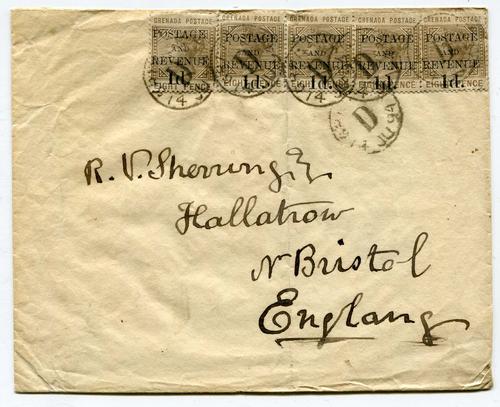 GRENADA POSTAGE GRENADA POSTAGE GRENADA POSTAGE GRENADA POSTAGE GRENADA POSTAGE
POSTAGE POSTAGE POSTAGE POSTAGE POSTAGE
AND AND AND AND AND
REVENUE REVENUE REVENUE REVENUE REVENUE
1d. 1d. 1d. 1d. 1d.
EIGHT PENCE EIGHT PENCE EIGHT PENCE EIGHT PENCE EIGHT PENCE
D
14 JU 94
R. V. Sherring Esq.
Hallatrow
N Bristol
England